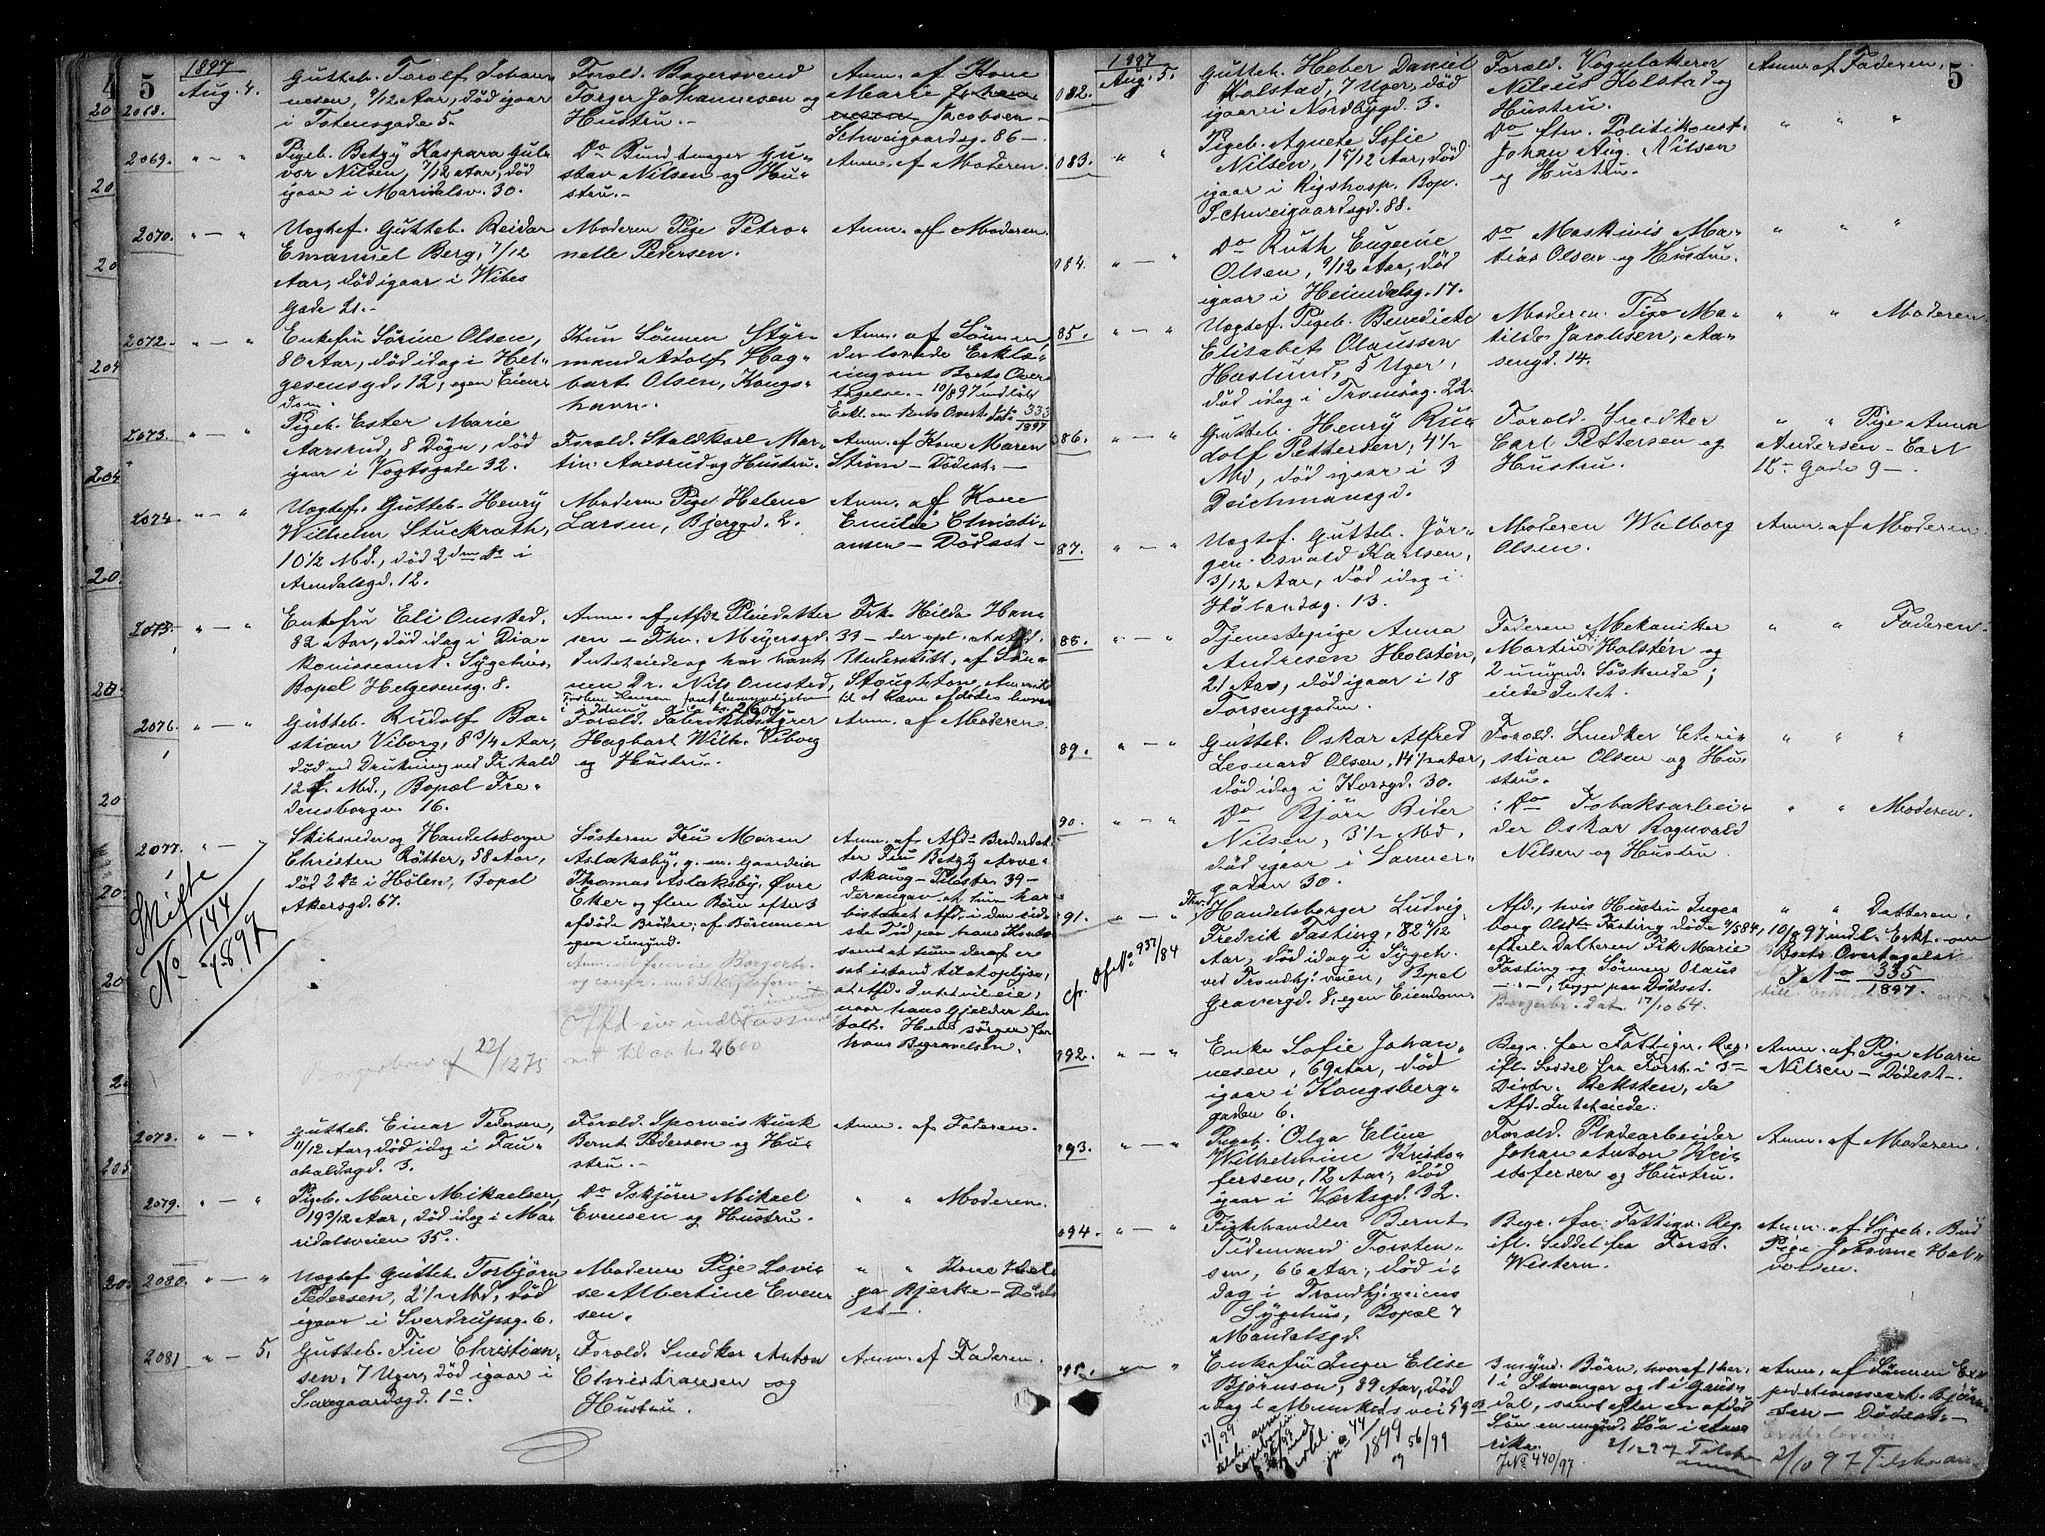 5
1897
2068.
Aug. 4.
Gutteb. Torolf Johan-
nesen, 9/12 Aar, död igaar
i Totensgade 5.
Forold. Bagersvend
Torger Johannesen og
Hustru.-
Anm. af Kone
Marie
Jacobsen -
Schweigaardsg. 86 -
2069.
Pigeb. Betzy Kaspara Gul-
vor Nilsen, 7/12 Aar, död
igaar i Maridalsv. 30.
Do Bundtmager Gu-
stav Nilsen og Hu-
stru.-
Anm. af Moderen.
2070.
Uegtef. Gutteb. Reidar
Emanuel Berg, 7/12
Aar, död igaar i Wibes
Gade 21.-
Moderen Pige Petro-
nelle Pedersen.
Anm. af Moderen.
2072.
Enkefru Sörine Olsen,
80 Aar, död idag i Hel-
gesensgd. 12, egen Eien-
dom.
Kun Sönnen Styr-
mand Adolf Hag-
bart Olsen, Kongs-
havn.
Anm. af Sönnen,
der lovede Erklæ-
ring om Boets Over-
tagelse. - 10/8 97 indlöb
Erkl. om Boets Overt. 333
1897
2073.
Pigeb. Ester Marie
Aarsrud, 8 Dögn, död
igaar i Vogtsgade 32.
Forold. Staldkarl Mar-
tin Aarsrud og Hustru.
Anm. af Kone Maren
Ström - Dödsst. -
2074.
Uegtef. Gutteb. Henry
Wilhelm Stuckrath,
10 1/2 Md., död 2den ds i
Arendalsgd. 12.
Moderen Pige Helene
Larsen, Bjerggd. 2.
Anm. af Kone
Emilie Christi-
ansen - Dödsst -
2075.
Enkefru Eli Omsted,
82 Aar, död idag i Dia-
konisseanst. Sygehus,
Bopæl Helgesensg. 8.
Anm. af Afdes Pleiedatter Frk. Hilda Han-
sen - Thv. Meyersgd. 33 - der opl. at Afd.
Intet eiede og har havt Understött. af Sön-
nen Dr. Nils Omsted, Stoughton, Amerika
2076.
Gutteb. Rudolf Ba-
stian Viborg, 8 3/4 Aar,
död ved Drukning ved Fr.hald
12 f. Md., Bopæl Fre-
densborgv. 16.
Forold. Fabrikbestyrer
Hagbart Wilh. Viborg
og Hustru.
Anm. af Moderen.
2077.
Skifte
No 144
1897
Skibsreder og Handelsborger
Christen Rötter, 58 Aar,
död 2 ds i Hölen, Bopæl
Akersgd. 67.
Sösteren Fru Maren
Aslaksby, g. m. Gaardeier
Thomas Aslaksby, Övre
Eker og flere Börn efter 3
afdöde Brödre; af Börnene
ogsaa umynd.
Anm. af Afdes Broderdat-
ter Fru Betzy Arve-
skaug - Pilestr. 39 -
der angav at hun har
bistaaet Afd. i den sid-
ste Tid paa hans Kontor
samt at hun deraf er
sat istand til at oplyse,
at Afd. Intet vil eie,
naar hans Gjælder be-
talt. Hun sörger for
hans Begravelsen.
22/12 75
2600
2078.
Gutteb. Einar Pedersen,
11/12 Aar, död idag i Fau-
chaldsgd. 3.
Forold. Sporveiskusk
Bernt Pedersen og Hu-
stru.-
Anm. af Faderen.
2079.
Pigeb. Marie Mikaelsen,
19 3/12 Aar, död idag i Ma-
ridalsveien 35.
Do Iskjörer Mikael
Evensen og Hustru.
" " Moderen.
2080.
Uegtef. Gutteb. Torbjörn
Pedersen, 2 1/2 Md., död
igaar i Sverdrupsg. 6.
Moderen Pige Lovi-
se Albertine Even-
sen.
" " Kone Hel-
ga Bjerke - Döds-
st -
2081
5.
Gutteb. Fin Christian-
sen, 7 Uger, död igaar i
Saxegaardsgd. 1c.
Forold. Snedker Anton
Christiansen og
Hustru.
Anm. af Faderen.
5
1897
082.
Aug. 5.
Gutteb. Heber Daniel
Kolstad, 7 Uger, död
igaar i Nordbygd. 3.
Forold. Vognlakerer
Nileus Kolstad og
Hustru.
Anm. af Faderen.
083.
Pigeb. Agnete Sofie
Nilsen, 1 5/12 Aar, död
igaar i Rigshosp. Bop.
Schweigaardsgd. 88.
Do frv. Politikonst.
Johan Aug. Nilsen
og Hustru.
" " "
084.
Do Ruth Eugenie
Olsen, 9/12 Aar, död
igaar i Heimdalsg. 17.
Do Maskinis Ma-
tias Olsen og Hustru.
" " "
85.
Uegtef. Pigeb. Benedicte
Elisabet Olaussen
Haslund, 5 Uger,
död idag i Tromsög. 22.
Moderen Pige Ma-
tilde Jacobsen, Aa-
sengd. 14.
" " Moderen.
86.
Gutteb. Henry Ru-
dolf Pettersen, 4 1/2
Md, död igaar i 3
Deichmansgd.
Forold. Snedker
Carl Pettersen og
Hustru.
" " Pige Anna
Andersen - Carl
12s Gade 9 -.
87.
Uegtef. Gutteb. Jör-
gen Osvald Karlsen,
3/12 Aar, död idag i
Hölandsg. 13.
Moderen Walborg
Olsen.
Anm. af Moderen.
88.
Tjenestepige Anna
Andresen Holstén,
21 Aar, död igaar i 18
Forsenggaden.
Faderen Mekaniker
Martin A. Holstén og
2 umynd. Söskende;
eiede Intet.
" " Faderen.
89.
Gutteb. Oskar Alfred
Leonard Olsen, 14 1/2 Aar,
död idag i Korsgd. 30.
Forold. Snedker Chri-
stian Olsen og Hu-
stru.
" " "
90.
Do Björn Bider
Nilsen, 3 1/2 Md.,
död igaar i Sanner-
gaden 30.
Do Tobaksarbei-
der Oskar Ragnvald
Nilsen og Hustru.
" " Moderen.
91.
cfr. Of No 937/84
Handelsborger Ludvig
Fredrik Fasting, 82 9/12
Aar, död idag i Sygeh.
ved Trondhj.veien, Bopæl
Gravergd. 8, egen Eiendom.
Afd., hvis Hustru Inge-
borg Olsdtr Fasting döde 9/5 84,
efterl. Datteren Frk Marie
Fasting og Sönnen Olaus
begge paa Dödsst.
Borgerbr. dat. 17/10 64.
" " Datteren.
10/8 97 indl. Erkl. om
Boets Overtagelse
J No 335
1897.
092.
Enke Sofie Johan-
nesen, 69 Aar, död
igaar i Kongsberg-
gaden 6.
Begr. for Fattigv. Reg.
ifl. Seddel fra Forst. i 3die
Distr. Reksten, da
Afd. Intet eiede.
Anm. af Pige Marie
Nilsen - Dödsst -.
093.
Pigeb. Olga Eline
Wilhelmine Kristo-
fersen, 12 Aar, död
igaar i Værksgd. 32.
Forold. Pladearbeider
Johan Anton Kri-
stofersen og Hustru.
Anm. af Moderen.
094.
Fiskehandler Bernt
Tidemand Torsten-
sen, 66 Aar, död i-
dag i Trondhj.veiens
Sygehus, Bopæl 7
Mandalsgd.
Begr. for Fattigv. Reg.
ifl. Seddel fra Forst.
Western.
Anm. af Sygeh. Bud
Pige Johanne Hal-
vorsen.
095.
Enkefru Inger Elise
Björnson, 89 Aar, död
idag i Munkedsvei 59 B
3 mynd. Börn, hvoraf 1 her,
1 i Stavanger og 1 i Gaus-
dal, samt efter en afdöd
Sön en umynd. Sön i Ame-
rika.
J No 440/97.
Anm. af Sönnen Ex-
peditionssekr. Björn-
son - Dödsst -
2/10 97 Tilsk.
44/1899 og 56/99